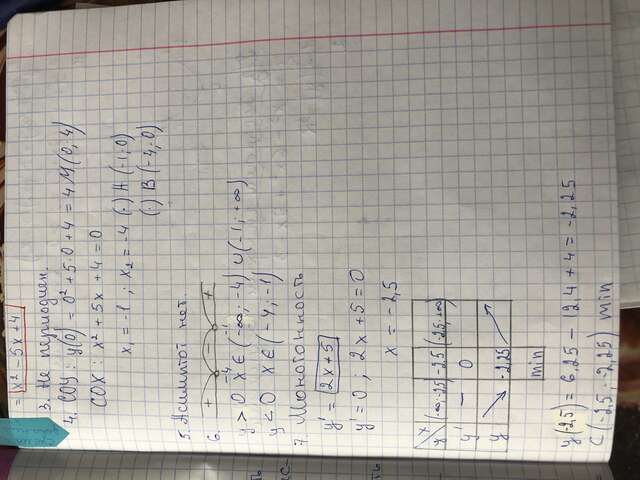 = x² - 5x + 4
3. Не периодичен.
4. СОУ: y(0) = 0² + 5·0 + 4 = 4 M(0; 4)
СОХ: x² + 5x + 4 = 0
x₁ = -1 ; x₂ = -4 (·) A (-1; 0)
(·) B (-4; 0)
5. Асимптот нет.
6. + - +
-4 -1
y > 0 x ∈ (-∞; -4) ∪ (-1; +∞)
y < 0 x ∈ (-4; -1)
7. Монотонность
y' = 2x + 5
y' = 0 ; 2x + 5 = 0
x = -2,5
x
y (-∞; -2,5) -2,5 (-2,5; +∞)
y' - 0
y ↘ -2,25 ↗
min
y(-2,5) = 6,25 - 12,4 + 4 = -2,25
C (-2,5; -2,25) min